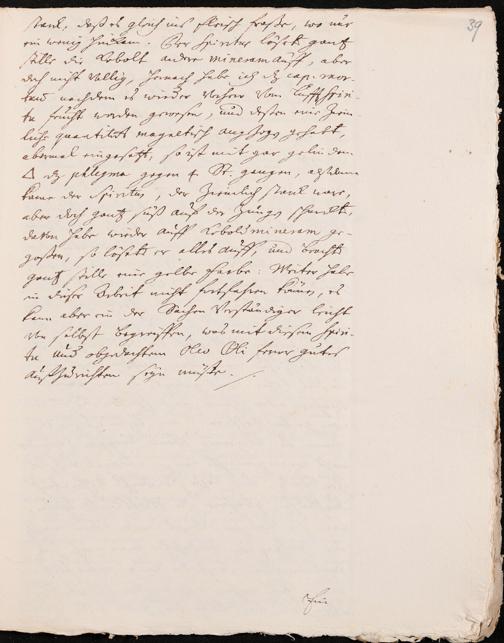 39
starck, daß es gleich ins fleisch fraße, wo nur
ein wenig hinkam. Der Spiritus lösete gantz
stille die Kobolt andre mineram auff, aber
doch nicht völlig, hernach habe ich dz cap. mor-
tuum nachdem es wieder vorher vom Lufft Spiri-
tu feucht worden gewesen, und dessen eine zim-
liche quantität magnetisch angezogen gehabt,
abermal eingesetzt, so ist mit gar gelindem
△ dz phlegma gegen 4 St. gangen, alsdann
kame der Spiritus, der ziemlich starck war,
aber doch gantz süß auf der Zunge schmeckte,
diesen habe wieder auff Kobold mineram ge-
goßen, so lösete er alles auff, und brachte
gantz stille eine gelbe farbe: Weiter habe
in dieser Arbeit nicht fortfahren können, es
kann aber ein der Sachen Verständiger leicht
von selbst begreiffen, was mit diesem Spiri-
tu und obgedachtem Oleo Oli ferner gutes
außzurichten seyn müste.
Ein